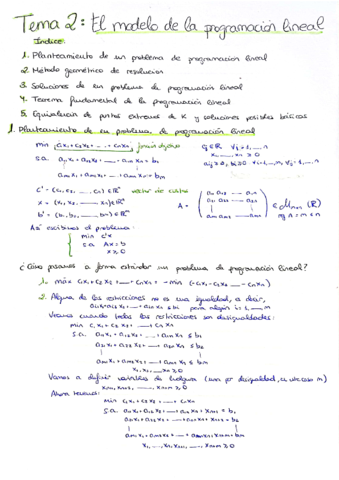 Tema 2: El modelo de la programación lineal
Índice:
1. Planteamiento de un problema de programación lineal
2. Método geométrico de resolución
3. Soluciones de un problema de programación lineal
4. Teorema fundamental de la programación lineal
5. Equivalencia de puntos extremos de K y soluciones posibles básicas
1. Planteamiento de un problema de programación lineal
min c₁x₁+c₂x₂+...+cₙxₙ
s.a. a₁₁x₁+a₁₂x₂+...a₁ₙxₙ=b₁
aₘ₁x₁+aₘ₂x₂+...aₘₙxₙ=bₘ
c'=(c₁,c₂,...,cₙ)∈ℝⁿ vector de costes
x=(x₁,x₂,...xₙ)∈ℝⁿ
b'=(b₁,b₂,...,bₘ)∈ℝᵐ
Así escribimos el problema:
min c'x
s.a. Ax=b
x≥0
¿Cómo pasamos a forma estándar un problema de programación lineal?
1. máx c₁x₁+c₂x₂+...cₙxₙ = -mín (-c₁x₁-c₂x₂...-cₙxₙ)
2. Alguna de las restricciones no es una igualdad, es decir,
para algún i=1,...,m
Veamos cuando todas las restricciones son desigualdades:
min c₁x₁+c₂x₂+...+cₙxₙ
s.a. a₁₁x₁+a₁₂x₂+...+a₁ₙxₙ≤b₁
a₂₁x₁+a₂₂x₂+...+a₂ₙxₙ≤b₂
aₘ₁x₁+aₘ₂x₂+...+aₘₙxₙ≤bₘ
x₁,x₂,...xₙ≥0
Vamos a definir variables de holgura (una por desigualdad, en este caso m)
xₙ₊₁, xₙ₊₂,..., xₙ₊ₘ≥0
Ahora tenemos:
min c₁x₁+c₂x₂+...+cₙxₙ
s.a. a₁₁x₁+a₁₂x₂+...+a₁ₙxₙ+xₙ₊₁=b₁
a₂₁x₁+a₂₂x₂+...+a₂ₙxₙ+xₙ₊₂=b₂
aₘ₁x₁+aₘ₂x₂+...+aₘₙxₙ+xₙ₊ₘ=bₘ
x₁,...,xₙ,xₙ₊₁,...,xₙ₊ₘ≥0